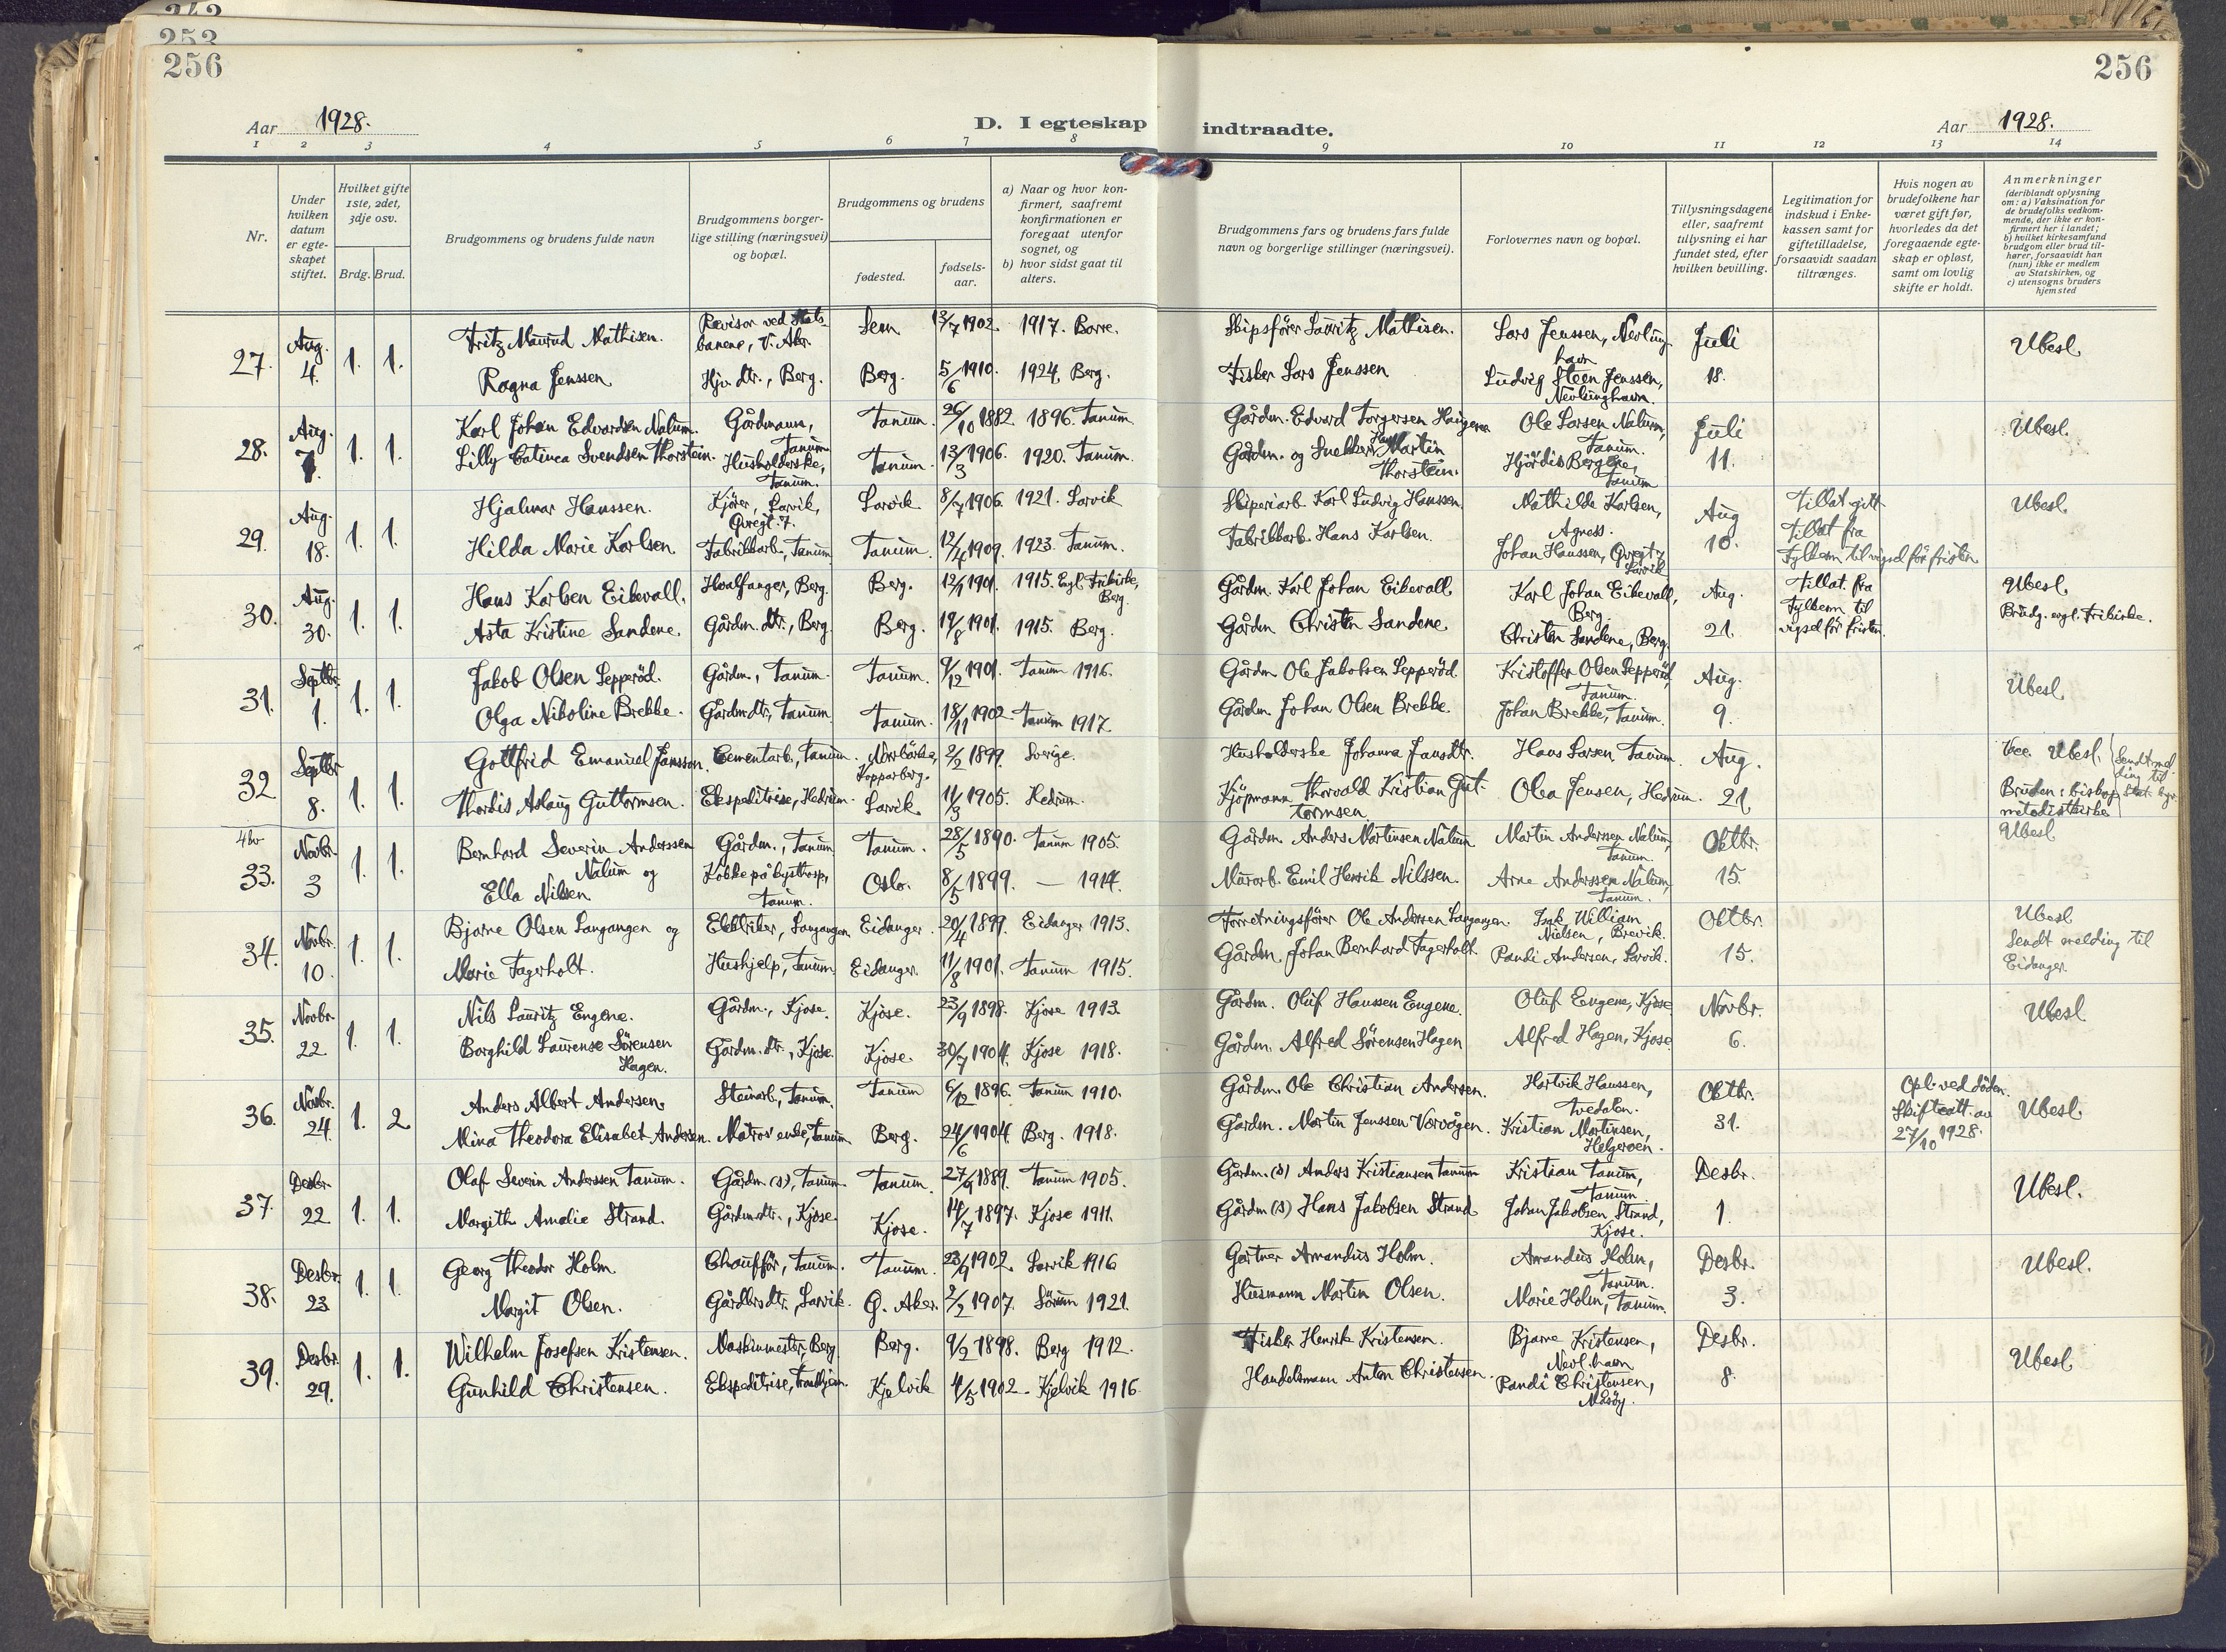 242
253
256
256
Aar 1928.
D. I egteskap indtraadte.
Aar 1928.
1 2 3 4 5 6 7 8 9 10 11 12 13 14
Nr.
Under hvilken datum er egte-skapet stiftet.
Hvilket gifte 1ste, 2det, 3dje osv.
Brdg. Brud.
Brudgommens og brudens fulde navn
Brudgommens borger-lige stilling (næringsvei) og bopæl.
Brudgommens og brudens
fødested.
fødsels-aar.
a) Naar og hvor kon-firmert, saafremt konfirmationen er foregaat utenfor sognet, og
b) hvor sidst gaat til alters.
Brudgommens fars og brudens fars fulde navn og borgerlige stillinger (næringsvei).
Forlovernes navn og bopæl.
Tillysningsdagene eller, saafremt tillysning ei har fundet sted, efter hvilken bevilling.
Legitimation for indskud i Enke-kassen samt for giftetilladelse, forsaavidt saadan tiltrænges.
Hvis nogen av brudefolkene har været gift før, hvorledes da det foregaaende egte-skap er opløst, samt om lovlig skifte er holdt.
Anmerkninger (deriblandt oplysning om: a) Vaksination for de brudefolks vedkom-mende, der ikke er kon-firmert her i landet; b) hvilket kirkesamfund brudgom eller brud til-hører, forsaavidt han (hun) ikke er medlem av Statskirken, og c) utensogns bruders hjemsted
27. Aug. 4. 1. 1. Fritz Maurud Mathisen. Revisor ved Stats-banene, V. Aker. Sem 13/7 1902. 1917. Borre. Skipsfører Lauritz Mathisen. Lars Jenssen, Nevlung-havn Juli Ubesl.
Ragna Jenssen Hjv. dtr., Berg. Berg. 5/6 1910. 1924. Berg. Fisker Lars Jenssen Ludvig Steen Jenssen, Nevlunghavn. 18.
28. Aug. 7. 1. 1. Karl Johan Edvardsen Nalum. Gårdmann, Tanum Tanum. 26/10 1882. 1896. Tanum. Gårdm. Edvard Torgersen Haugene Ole Larsen Nalum, Tanum. Juli Ubesl.
Lilly Catinca Svendsen Thorstein. Husholderske, Tanum. Tanum. 13/3 1906. 1920. Tanum. Gårdm. og Snekker Hans Martin Thorstein. Hjördis Bergene, Tanum 11.
29. Aug. 18. 1. 1. Hjalmar Hanssen. Kjører, Larvik, Gvegt. 7. Larvik 8/7 1906. 1921. Larvik Skiperiarb. Karl Ludvig Hanssen. Mathilde Karlsen, Agness. Aug Tillat gitt Ubesl.
Hilda Marie Karlsen. Fabrikkarb., Tanum. Tanum. 12/4 1909. 1923. Tanum. Fabrikkarb. Hans Karlsen. Johan Hanssen, Gvegt 7 Larvik 10. Tillat fra Fylkesm. til vigsel før fristen
30. Aug. 30. 1. 1. Hans Karlsen Eikevall. Hvalfanger, Berg. Berg. 12/1 1901. 1915. Evgl. Frikirke, Berg. Gårdm. Karl Johan Eikevall Karl Johan Eikevall, Berg. Aug. Tillat. fra Ubesl
Asta Kristine Sandene. Gårdm. dtr., Berg. Berg. 19/8 1901. 1915. Berg. Gårdm Christen Sandene Christen Sandene, Berg. 21. Fylkesm til vigsel før fristen. Brudg. evgl. frikirke.
31. Septbr. 1. 1. 1. Jakob Olsen Lepperød. Gårdm., Tanum. Tanum. 9/12 1901. Tanum 1916. Gårdm Ole Jakobsen Lepperød. Kristoffer Olsen Lepperød, Tanum. Aug. Ubesl
Olga Nikoline Brekke. Gårdm.dtr., Tanum. Tanum. 18/11 1902. Tanum 1917. Gårdm. Johan Olsen Brekke. Johan Brekke, Tanum. 9.
32. Septbr 8. 1. 1. Gottfrid Emanuel Jansson. Cementarb., Tanum. Norrbärke, Kopparberg. 2/2 1899. Sverige. Husholderske Johanna Jansdtr. Hans Larsen, Tanum. Aug. Vac. Ubesl. Sendt mel-ding til Stat. byr.
Thordis Aslaug Guttormsen. Ekspeditrise, Hedrum. Larvik 11/3 1905. Hedrum. Kjöpmann Thorvald Kristian Gut-tormsen Olea Jensen, Hedrum. 21. Bruden: biskop metodistkirke
33. Novbr. 3 1. 1. Bernhard Severin Anderssen Nalum og Gårdm., Tanum. Tanum. 28/5 1890. Tanum 1905. Gårdm. Anders Martinsen Nalum Martin Anderssen Nalum, Tanum. Oktbr. Ubesl
Ella Nilsen Kokke på kysthosp., Tanum. Oslo. 8/5 1899. — 1914. Murarb. Emil Henrik Nilssen. Arne Anderssen Nalum, Tanum. 15.
34. Novbr. 10. 1. 1. Bjarne Olsen Langangen og Elektriker, Langangen. Eidanger. 20/4 1899. Eidanger 1913. Forretningsfører Ole Anderssen Langangen. Isak William Nielsen, Brevik. Oktbr. Ubesl
Marie Fagerholt. Hushjelp, Tanum Eidanger. 11/8 1901. Tanum 1915. Gårdm. Johan Bernhard Fagerholt. Randi Andersen, Larvik. 15. Sendt melding til Eidanger.
35. Novbr. 22 1. 1. Nils Lauritz Engene. Gårdm., Kjose. Kjose. 23/9 1898. Kjose 1913. Gårdm. Oluf Hanssen Engene. Oluf Engene, Kjose Novbr. Ubesl
Borghild Laurense Sörensen Hagen. Gårdm. dtr., Kjose. Kjose. 30/7 1904. Kjose 1918. Gårdm. Alfred Sörensen Hagen Alfred Hagen, Kjose 6.
36. Novbr. 24. 1. 2 Anders Albert Andersen. Steinarb., Tanum. Tanum 6/12 1896. Tanum 1910. Gårdm. Ole Christian Andersen. Hartvik Hanssen, Tvedalen. Oktbr. Opl. ved döden. Ubesl.
Mina Theodora Elisabet Andersen. Matros' enke, Tanum. Berg. 24/6 1904. Berg. 1918. Gårdm. Martin Jenssen Vorvågen. Kristian Martinsen, Helgeroen. 31. Skifteatt. av 27/10 1928.
37. Desbr. 22 1. 1. Olaf Severin Anderssen Tanum. Gårdm. (s), Tanum. Tanum. 27/9 1889. Tanum 1905. Gårdm. (s) Anders Kristiansen Tanum Kristian Tanum, Tanum Desbr. Ubesl.
Margith Amalie Strand. Gårdm.dtr., Kjose. Kjose. 14/7 1897. Kjose 1911. Gårdm (s) Hans Jakobsen Strand Johan Jakobsen Strand, Kjose. 1.
38. Desbr. 23 1. 1. Georg Theodor Holm. Chauffør, Tanum. Tanum. 23/9 1902. Larvik 1916 Gartner Amandus Holm. Amandus Holm, Tanum. Desbr. Ubesl.
Margit Olsen. Gårdbrs dtr., Larvik. Ø. Aker. 2/2 1907. Sörum 1921. Husmann Martin Olsen. Marie Holm, Tanum. 3.
39. Desbr. 29. 1. 1. Wilhelm Josefsen Kristensen. Maskinmester, Berg. Berg. 9/2 1898. Berg 1912. Fisker Henrik Kristensen. Bjarne Kristensen, Nevl. havn Desbr. Ubesl.
Gunhild Christensen. Ekspeditrise, Trondhjem. Kjelvik 4/5 1902. Kjelvik 1916. Handelsmann Anton Christensen. Randi Christensen, Måsöy. 8.